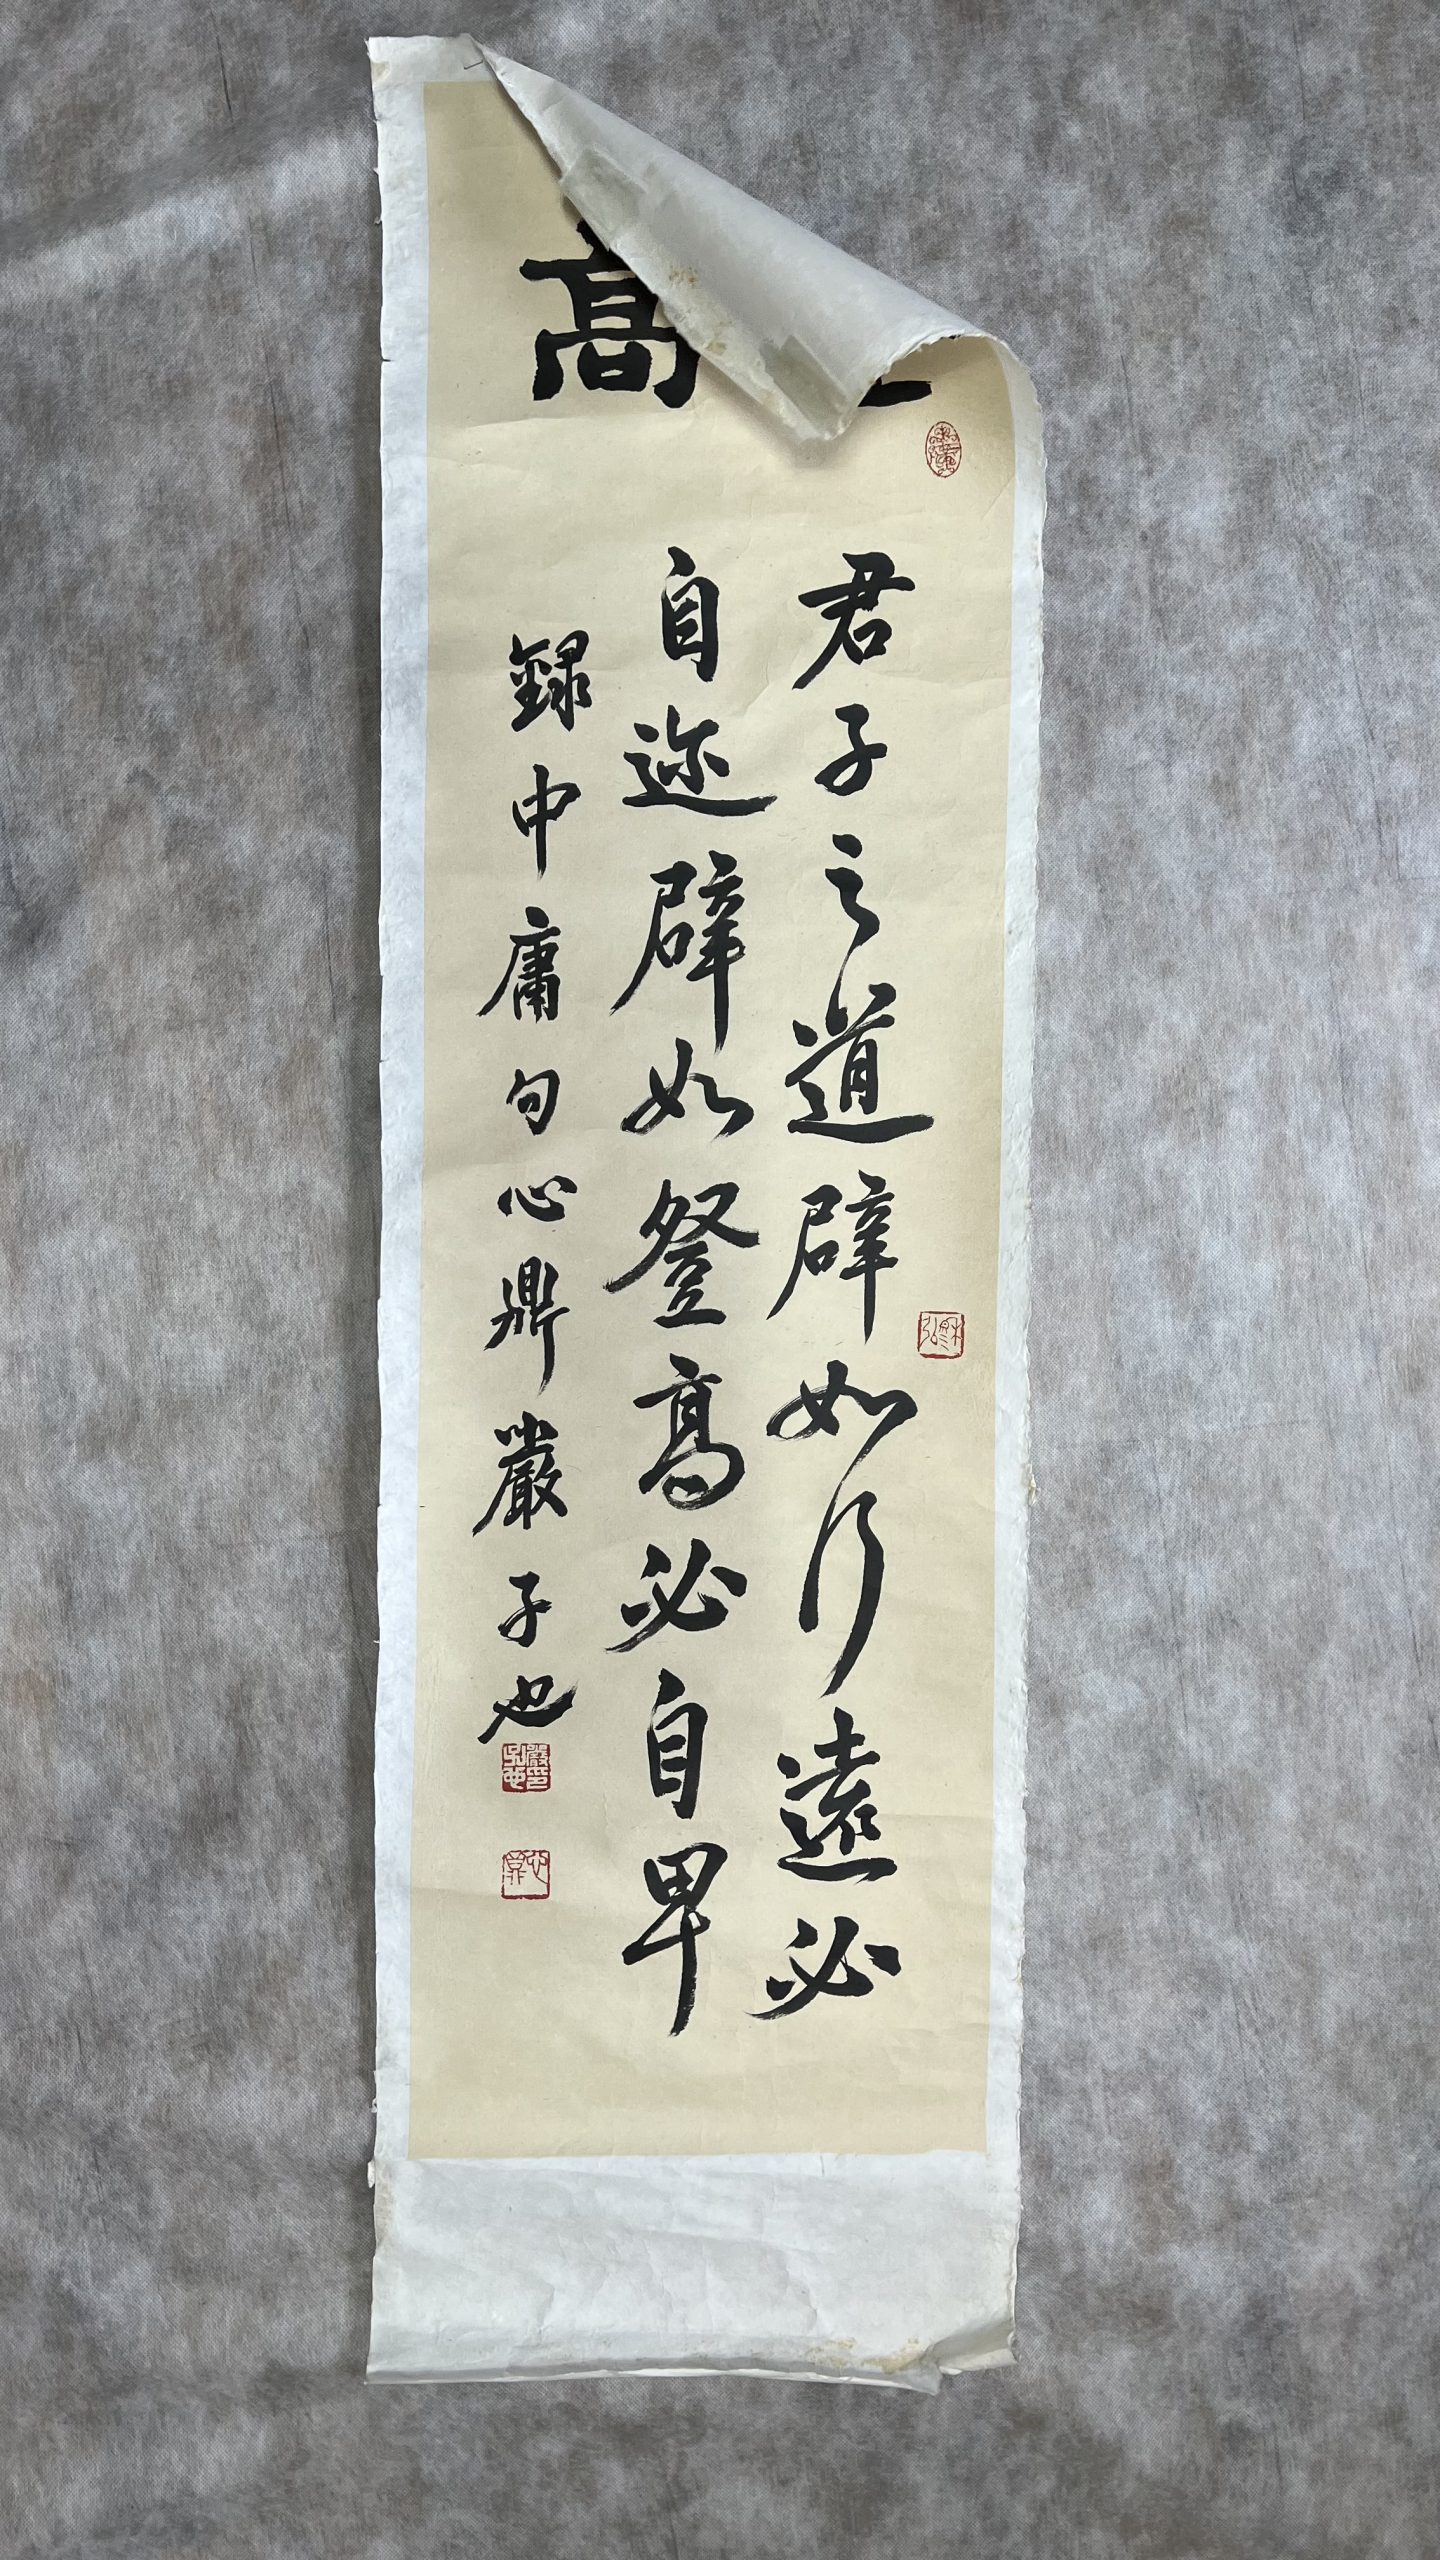 高
君子之道辟如行遠必
自迩辟如登高必自卑
録中庸句心鼎嚴子也